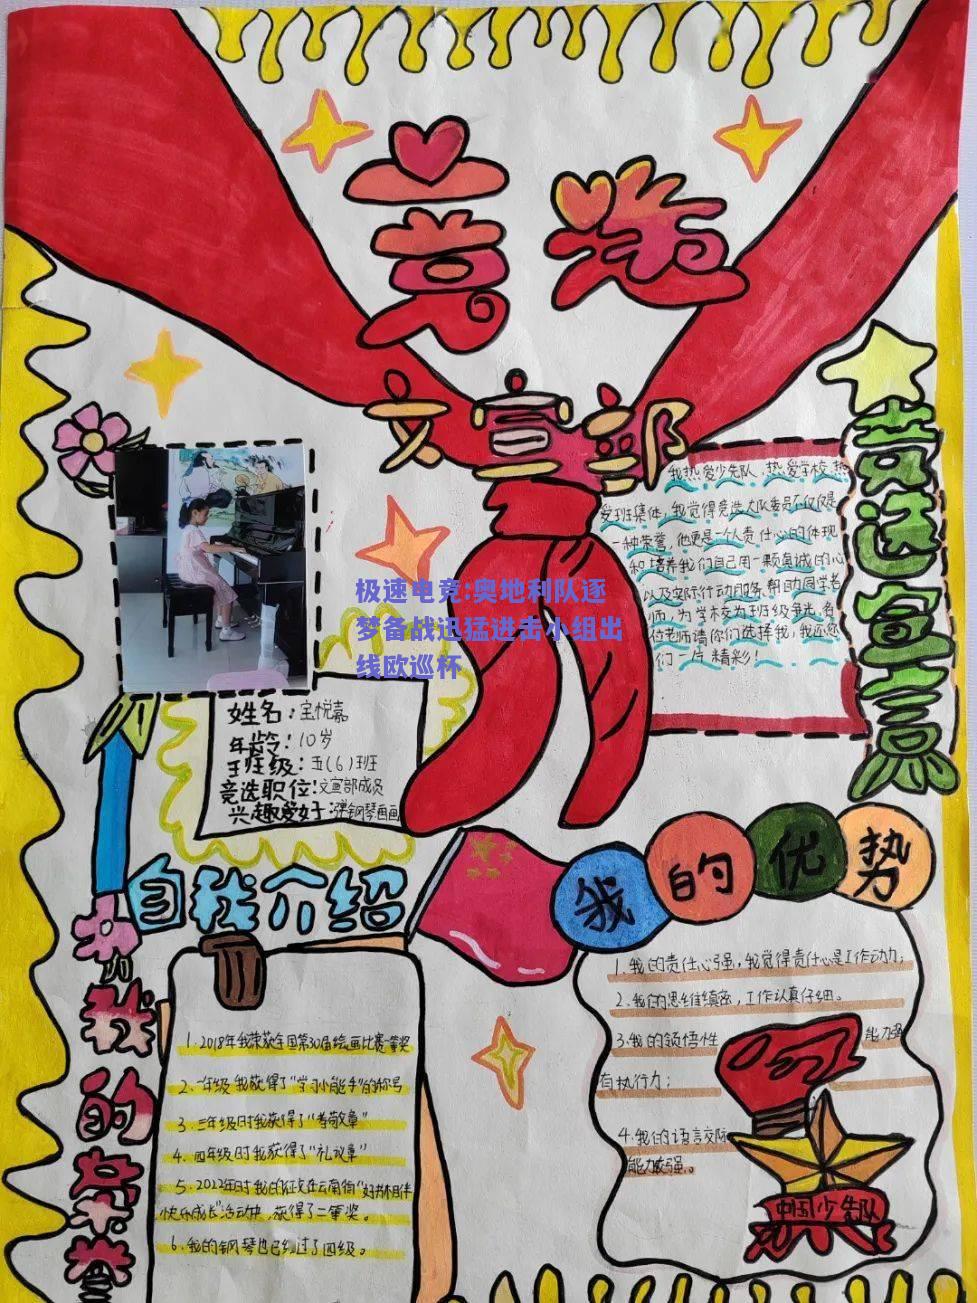 竞选
文宣部
竞选宣言
我热爱少先队，热爱学校，热
爱班集体，我觉得竞选大队委员不仅仅是
一种荣誉，他更是一个人责任心的体现
和培养我们自己用一颗真诚的心
以及实际行动服务，帮助同学老
师，为学校为班级争光，各
位老师请你们选择我，我还您
们一片精彩！
极速电竞:奥地利队逐
梦备战迅猛进击小组出
线欧巡杯
姓名：宝悦嘉
年龄：10岁
班级：五(6)班
竞选职位：文宣部成员
兴趣爱好：弹钢琴画画
自我介绍
我的优势
1.我的责任心强，我觉得责任心是工作动力；
2.我的思维缜密，工作认真仔细。
3.我的领悟性 能力强
有执行力；
4.我的语言交际
能力较强。
中国少先队
我的荣誉
1.2018年我荣获全国第30届绘画比赛一等奖
2.一年级我获得了“学习小能手”的称号
3.三年级时我获得了“孝敬章”
4.四年级时我获得了“礼仪章”
5.2022年时我的征文在云南街“好书相伴
快乐成长”活动中，获得了二等奖。
6.我的钢琴也已经过了四级。